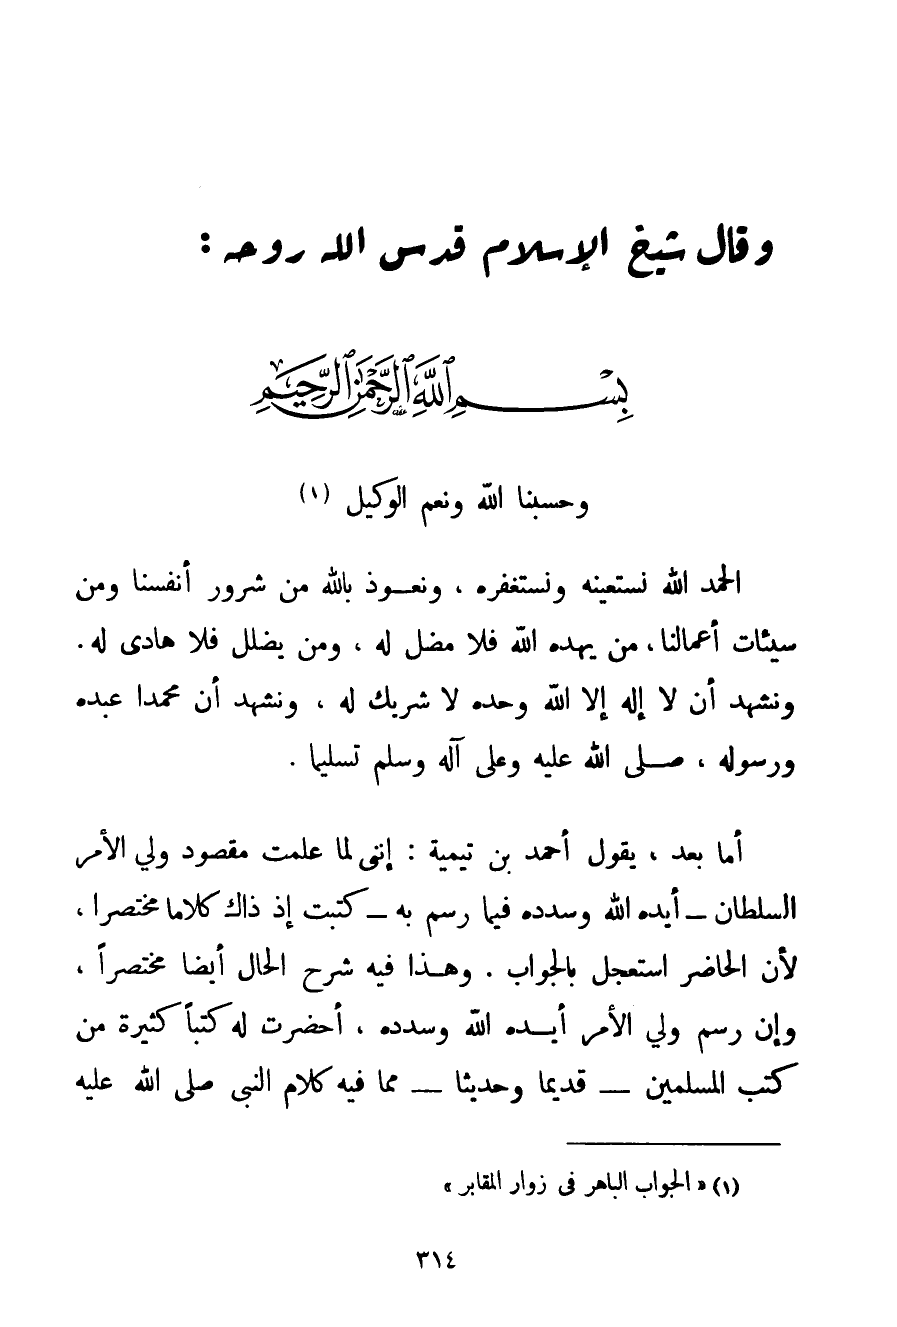 وقال شيخ الإسلام قدس الله روحه :
بِسْمِ اللَّهِ الرَّحْمَٰنِ الرَّحِيمِ
وحسبنا الله ونعم الوكيل (١)
الحمد الله نستعينه ونستغفره ، ونعوذ بالله من شرور أنفسنا ومن
سيئات أعمالنا، من يهده الله فلا مضل له ، ومن يضلل فلا هادى له .
ونشهد أن لا إله إلا الله وحده لا شريك له ، ونشهد أن محمدا عبده
ورسوله ، صلى الله عليه وعلى آله وسلم تسليما .
أما بعد ، يقول أحمد بن تيمية : إننى لما علمت مقصود ولي الأمر
السلطان – أيده الله وسدده فيما رسم به – كتبت إذ ذاك كلاما مختصرا ،
لأن الحاضر استعجل بالجواب . وهذا فيه شرح الحال أيضا مختصراً ،
وإن رسم ولي الأمر أيده الله وسدده ، أحضرت له كتباً كثيرة من
كتب المسلمين – قديما وحديثا – مما فيه كلام النبى صلى الله عليه
(١) « الجواب الباهر فى زوار المقابر »
٣١٤